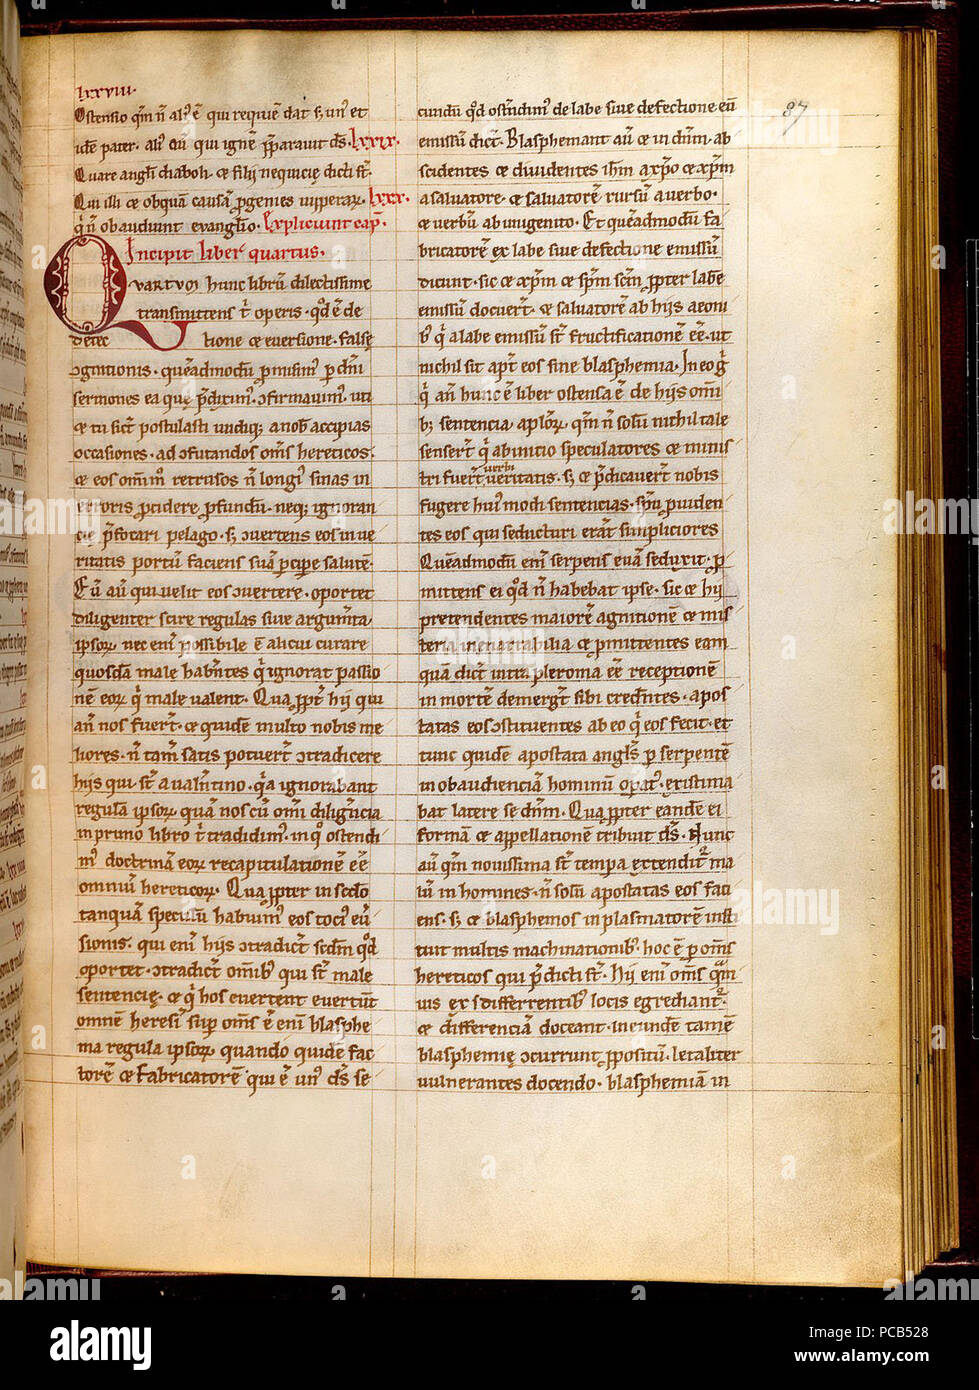 lxxviii.
Ostensio qm̄ n̄ al᷒ ē qui requiē dat ⁊ un᷒ et
idē pater. ali᷒ aū qui ignē p̄parauit dс̄. lxxix.
Quare angli diaboli. ⁊ filij nequicię dicti st̄.
Qui illi ⁊ ob quā causā ꝓgenies uiperaꝝ. lxxx.
q̄ n̄ obaudiunt euanglio. Expliciunt cap̄.
Incipit liber quartus.
QVARTVM hunc librū dilectissime
transmittens t̄ operis. qd̄ ē de
detec tione ⁊ euersione. falsę
ɔgnitionis. quēadmodū ꝓmisim᷒ ꝑ dn̄i
sermones ea quę p̄dixim᷒. ɔfirmauim᷒. ut
⁊ tu sic̄ postulasti undiq; a nob̄ accipias
occasiones. ad ɔfutandos om̄s hereticos.
⁊ eos om̄im retrusos n̄ longi᷒ sinas in
erroris ꝓcidere ꝓfundū. neq; ignoran
cię p̄focari pelago. s; ɔuertens eos in ue
ritatis portū faciens suā ꝑcipe salutē.
Eū aū qui uelit eos ɔuertere. oportet
diligenter scire regulas siue argum̄ta
ipsoꝝ. nec eni᷒ possibile ē alicui curare
quosdā male hab̄ntes q̄ ignorat passio
nē eoꝝ q̄ male ualent. Qua ꝓpt̄ hij qui
an̄ nos fuer̄t. ⁊ quidē multo nobis me
liores. n̄ tam̄ satis potuer̄t ɔtradicere
hijs qui st̄ a ualn̄tino. q̄a ignorabant
regulā ipsoꝝ. quā nos cū om̄i dilign̄cia
in primo libro t̄ tradidim᷒. in q᷒ ostendi
m᷒ doctrinā eoꝝ recapitulationē ēē
omniū hereticoꝝ. Qua ꝓpter in sc̄do
tanquā speculū habuim᷒ eos toci᷒ eū
sionis. qui eni᷒ hijs ɔtradic̄t sc̄dm qd̄
oportet. ɔtradic̄t om̄ib᷒ qui st̄ male
sentencię. ⁊ q̄ hos euertent euertūt
omnē heresī. sup om̄s ē eni᷒ blasphe
ma regula ipsoꝝ quando quidē fac
torē ⁊ Fabricatorē qui ē un᷒ dс̄ se
87
cundū qd̄ ostn̄dim᷒ de labe siue defectione eū
emissū dic̄t. Blasphemant aū ⁊ in dn̄m. ab
scidentes ⁊ diuidentes ih̄m a xp̄o ⁊ xp̄m
a saluatore. ⁊ saluatorē rursū a uerbo.
⁊ uerbū ab unigenito. Et quēadmodū fa
bricatorē ex labe siue defectione emissū
dicunt. sic ⁊ xp̄m ⁊ sp̄m sc̄m ꝓpter labē
emissū docuer̄t. ⁊ saluatorē ab hijs aeoni
b᷒ q̄ a labe emissū st̄ fructificationē ēē. ut
nichil sit apt̄ eos sine blasphemia. In eo ḡ
q̄ an̄ hunc ē liber ostensa ē de hijs omī
b; sentencia aploꝝ. qm̄ n̄ solū nichil tale
senser̄t q̄ ab initio speculatores ⁊ minis
tri fuer̄t uerbi ueritatis. s; ⁊ p̄dicauer̄t nobis
fugere hui᷒modi sentencias. sp̄u ꝓuiden
tes eos qui seducturi erāt simpliciores
Quēadmodū eni᷒ serpens euā seduxit. ꝓ
mittens ei qd̄ n̄ habebat ipse. sic ⁊ hij
pretendentes maiorē agnitionē ⁊ mis
teria inenarrabilia ⁊ ꝓmittentes eam
quā dic̄t intra pleroma ēē receptionē
in mortē demergt̄ sibi credn̄tes. apos
tatas eos ɔstituentes ab eo q̄ eos fecit. et
tunc quidē apostata angls̄ ꝑ serpentē
inobaudienciā hominū opat᷒. existima
bat latere se dn̄m. Qua ꝓpter eandē ei
formā ⁊ appellationē tribuit dс̄. Nunc
aū qm̄ nouissima st̄ tempa extendit᷒ ma
lū in homines. n̄ solū apostatas eos faci
ens. s; ⁊ blasphemos in plasmatorē insti
tuit multis machinationib᷒. hoc ē ꝑ om̄s
hereticos qui p̄dicti st̄. Hij eni᷒ om̄s quam
uis ex differentib᷒ locis egrediant᷒.
⁊ differenciā doceant. in eundē tamē
blasphemię ɔcurrunt ꝓpositū. letaliter
uulnerantes docendo. blasphemiā in
alamy
Image ID: PCB528
www.alamy.com